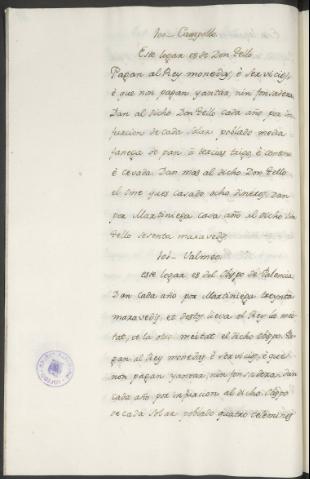 Campillo
Este logar es de Don Tello
Pagan al Rey monedas, è servicios
è que non pagan yantar, nin fonsadera
Dan al dicho Don Tello cada año por in-
furcion de cada solar poblado media
fanega de pan ò tercias trigo, è centeno
è cevada. Dan mas al dicho Don Tello
el ome ques casado ocho dineros, Dan
por Martiniega cada año al dicho Don
Tello sesenta maravedis
Valmeo
Este logar es del Obispo de Palencia
Dan cada año por Martiniega treynta
maravedis, è destos lieva el Rey la mei-
tat, è la otra meitat el dicho Obispo. Pa-
gan al Rey monedas, è servicios, è que
non pagan yantar, nin fonsadera. Dan
cada año por infurcion al dicho Obispo
de cada solar poblado quatro celemines